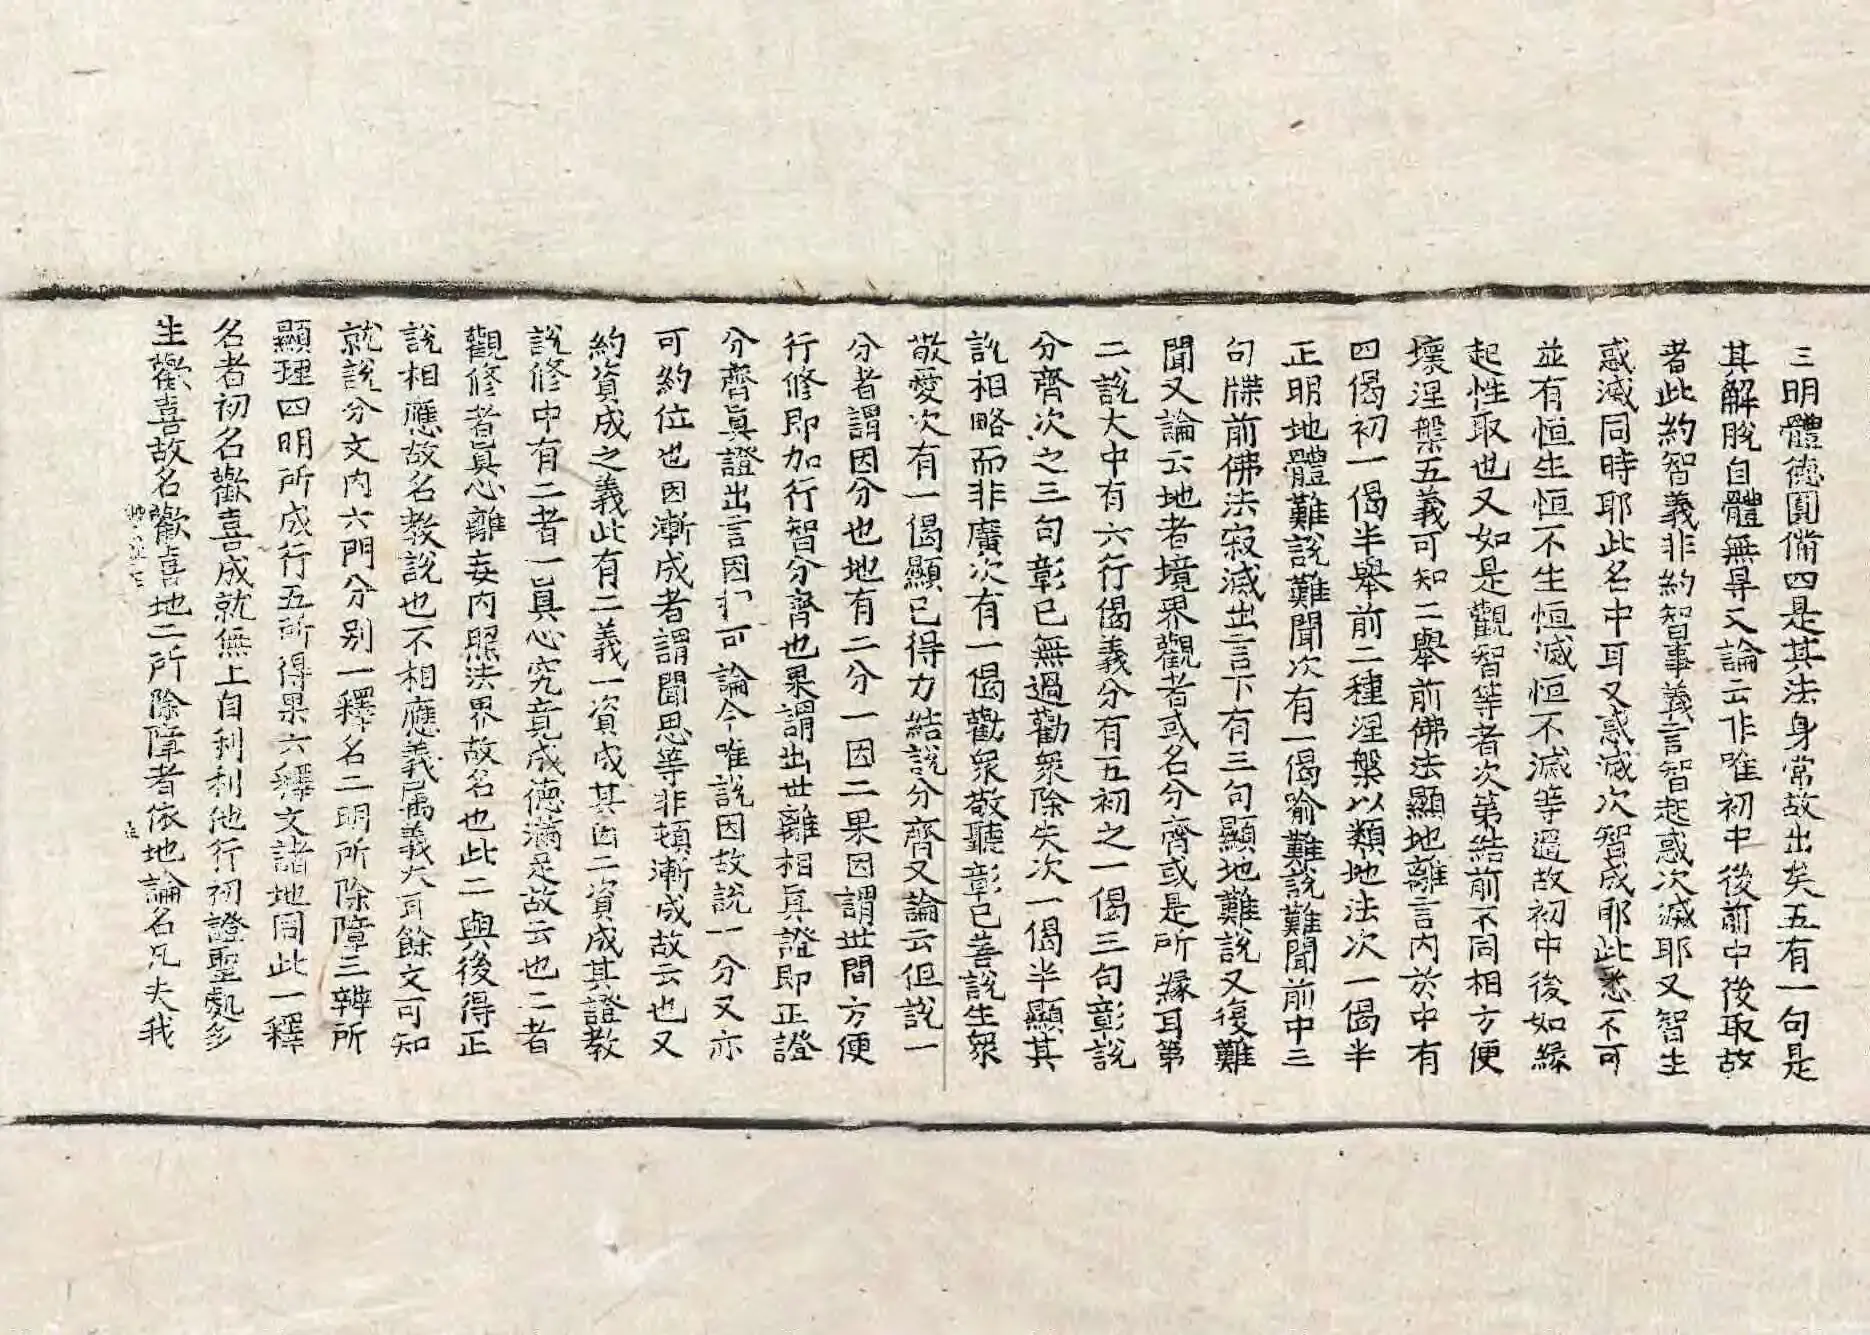 三明體德圓備四是其法身常故出矣五有一句是
其解脫自體無㝵又論云非唯初中後前中後取故
者此約智義非約智事義言智起惑次滅耶又智生
惑滅同時耶此名中耳又惑滅次智成耶此悉不可
並有恒生恒不生恒滅恒不滅等過故初中後如緣
起性取也又如是觀智等者次第結前不同相方便
壞涅槃五義可知二舉前佛法顯地離言内於中有
四偈初一偈半舉前二種涅槃以類地法次一偈半
正明地體難說難聞次有一偈喻難說難聞前中三
句牒前佛法寂滅出言下有三句顯地難說又復難
聞又論云地者境界觀者或名分齊或是所緣耳第
二說大中有六行偈義分有五初之一偈三句彰說
分齊次之三句彰已無過勸衆除失次一偈半顯其
說相略而非廣次有一偈勸衆敬聽彰已善說生衆
敬愛次有一偈顯已得力結說分齊又論云但說一
分者謂因分也地有二分一因二果因謂世間方便
行修即加行智分齊也果謂出世離相真證即正證
分齊真證出言因可論今唯說因故說一分又亦
可約位也因漸成者謂聞思等非頓漸成故云也又
約資成之義此有二義一資成其因二資成其證教
說修中有二者一真心究竟成德滿足故云也二者
觀修者真心離妄内照法界故名也此二與後得正
說相應故名教說也不相應義屬義大耳餘文可知
就說分文内六門分別一釋名二明所除障三辨所
顯理四明所成行五所得果六釋文諸地同此一釋
名者初名歡喜成就無上自利利他行初證聖處多
生歡喜故名歡喜地二所除障者依地論名凡夫我